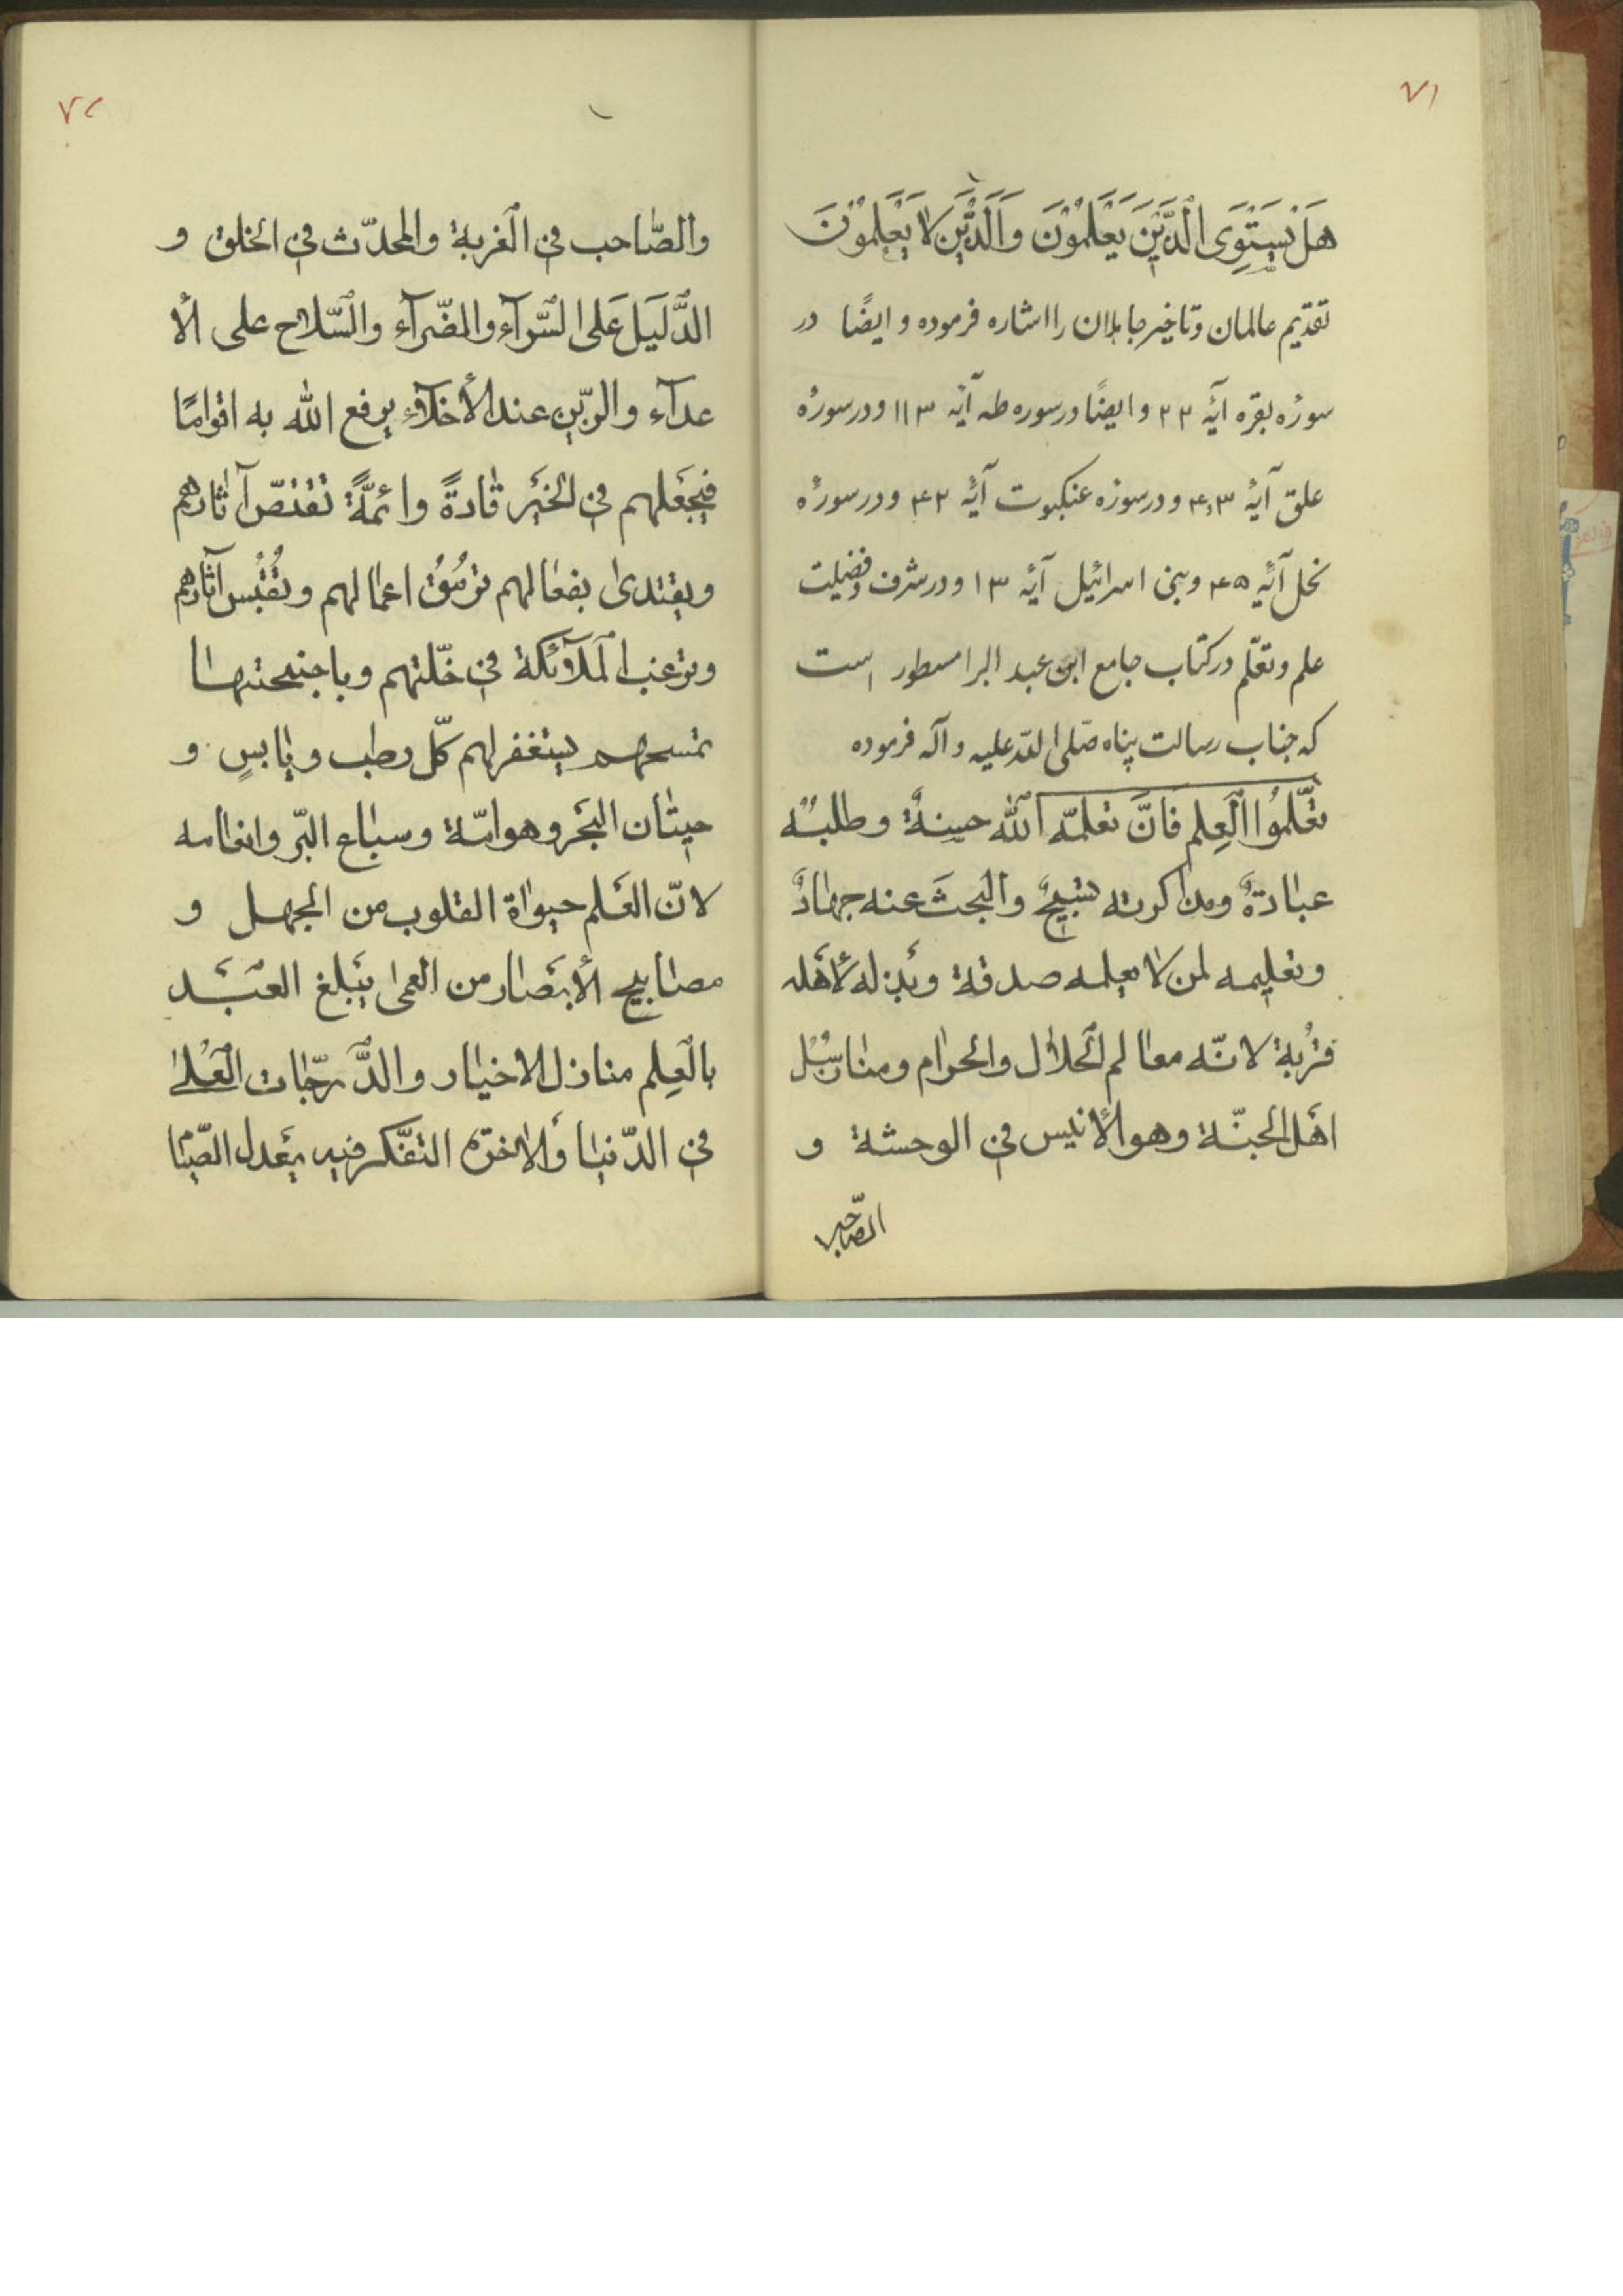 ۷۱
هَلْ يَسْتَوِى الَّذَيْنَ يَعْلَمُوْنَ وَالَّذَيْنَ لَا يَعْلَمُوْنَ
تقدیم عالمان و تاخیر جاهلان را اشاره فرموده و ایضًا در
سورهٔ بقره آیهٔ ۳۳ و ایضًا در سوره طه آیهٔ ۱۱۳ و در سورهٔ
علق آیهٔ ۳،۴ و در سورهٔ عنکبوت آیهٔ ۴۳ و در سورهٔ
نحل آیهٔ ۴۵ و بنی اسرائیل آیهٔ ۱۳ و در شرف و فضیلت
علم و تعلّم در کتاب جامع ابن عبد البر مسطور است
که جناب رسالت پناه صلّی اللّه علیه و آله فرموده
تعَّلمُوا الْعِلم فَانَّ تعلمّه الله حسنةٌ وطلبهُ
عبادةٌ ومذاكرته تسْبيحٌ والْبحثَ عنه جهادٌ
وتعليمه لمن لا يعلمه صدقة وبَذله لأهَله
قرُبة لانّه معالم الْحلال والحرام ومنار سُبُل
اهَل الجنّة وهو الأنيس في الوحشة و
الصّاحب
۷۲
والصّاحب في الْغربة والمحدّث في الخلق و
الدَّليَل عَلى السّرآء والضّرآء والسّلاح على الأ
عدآء والزّين عند الأخلآء يرفع الله به اقوامًا
فيجَعَلهم في الْخيَر قادةً وائمَّةً تقتصّ آثارهم
ويقتدى بفعالهم ترمُقُ اعمالهم وتُقْبَس آثارهم
وترغب الملآئكة في خلّتهم وباجنحتها
تمسحهم يستغفر لهم كلّ رطب ويابسٍ و
حيتان البَحَر وهوامّة وسباع البّر وانعامه
لانّ العَلم حيوٰة القلوب من الجهل و
مصابيح الأبصَار من العمى يَبلغ العبَد
بالْعِلم منازل الاخيار والدَّرجّات الْعُلىٰ
في الدّنيا وَالاخرة التفّكر فيه يعَدل الصّيا